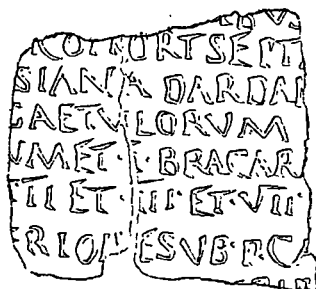 COHORT SEPT
SIANA DARDA
GAETVLORVM
VM ET·I·BRACAR
III ET·III·ET·VII·
ERIORE SVB·P·CA